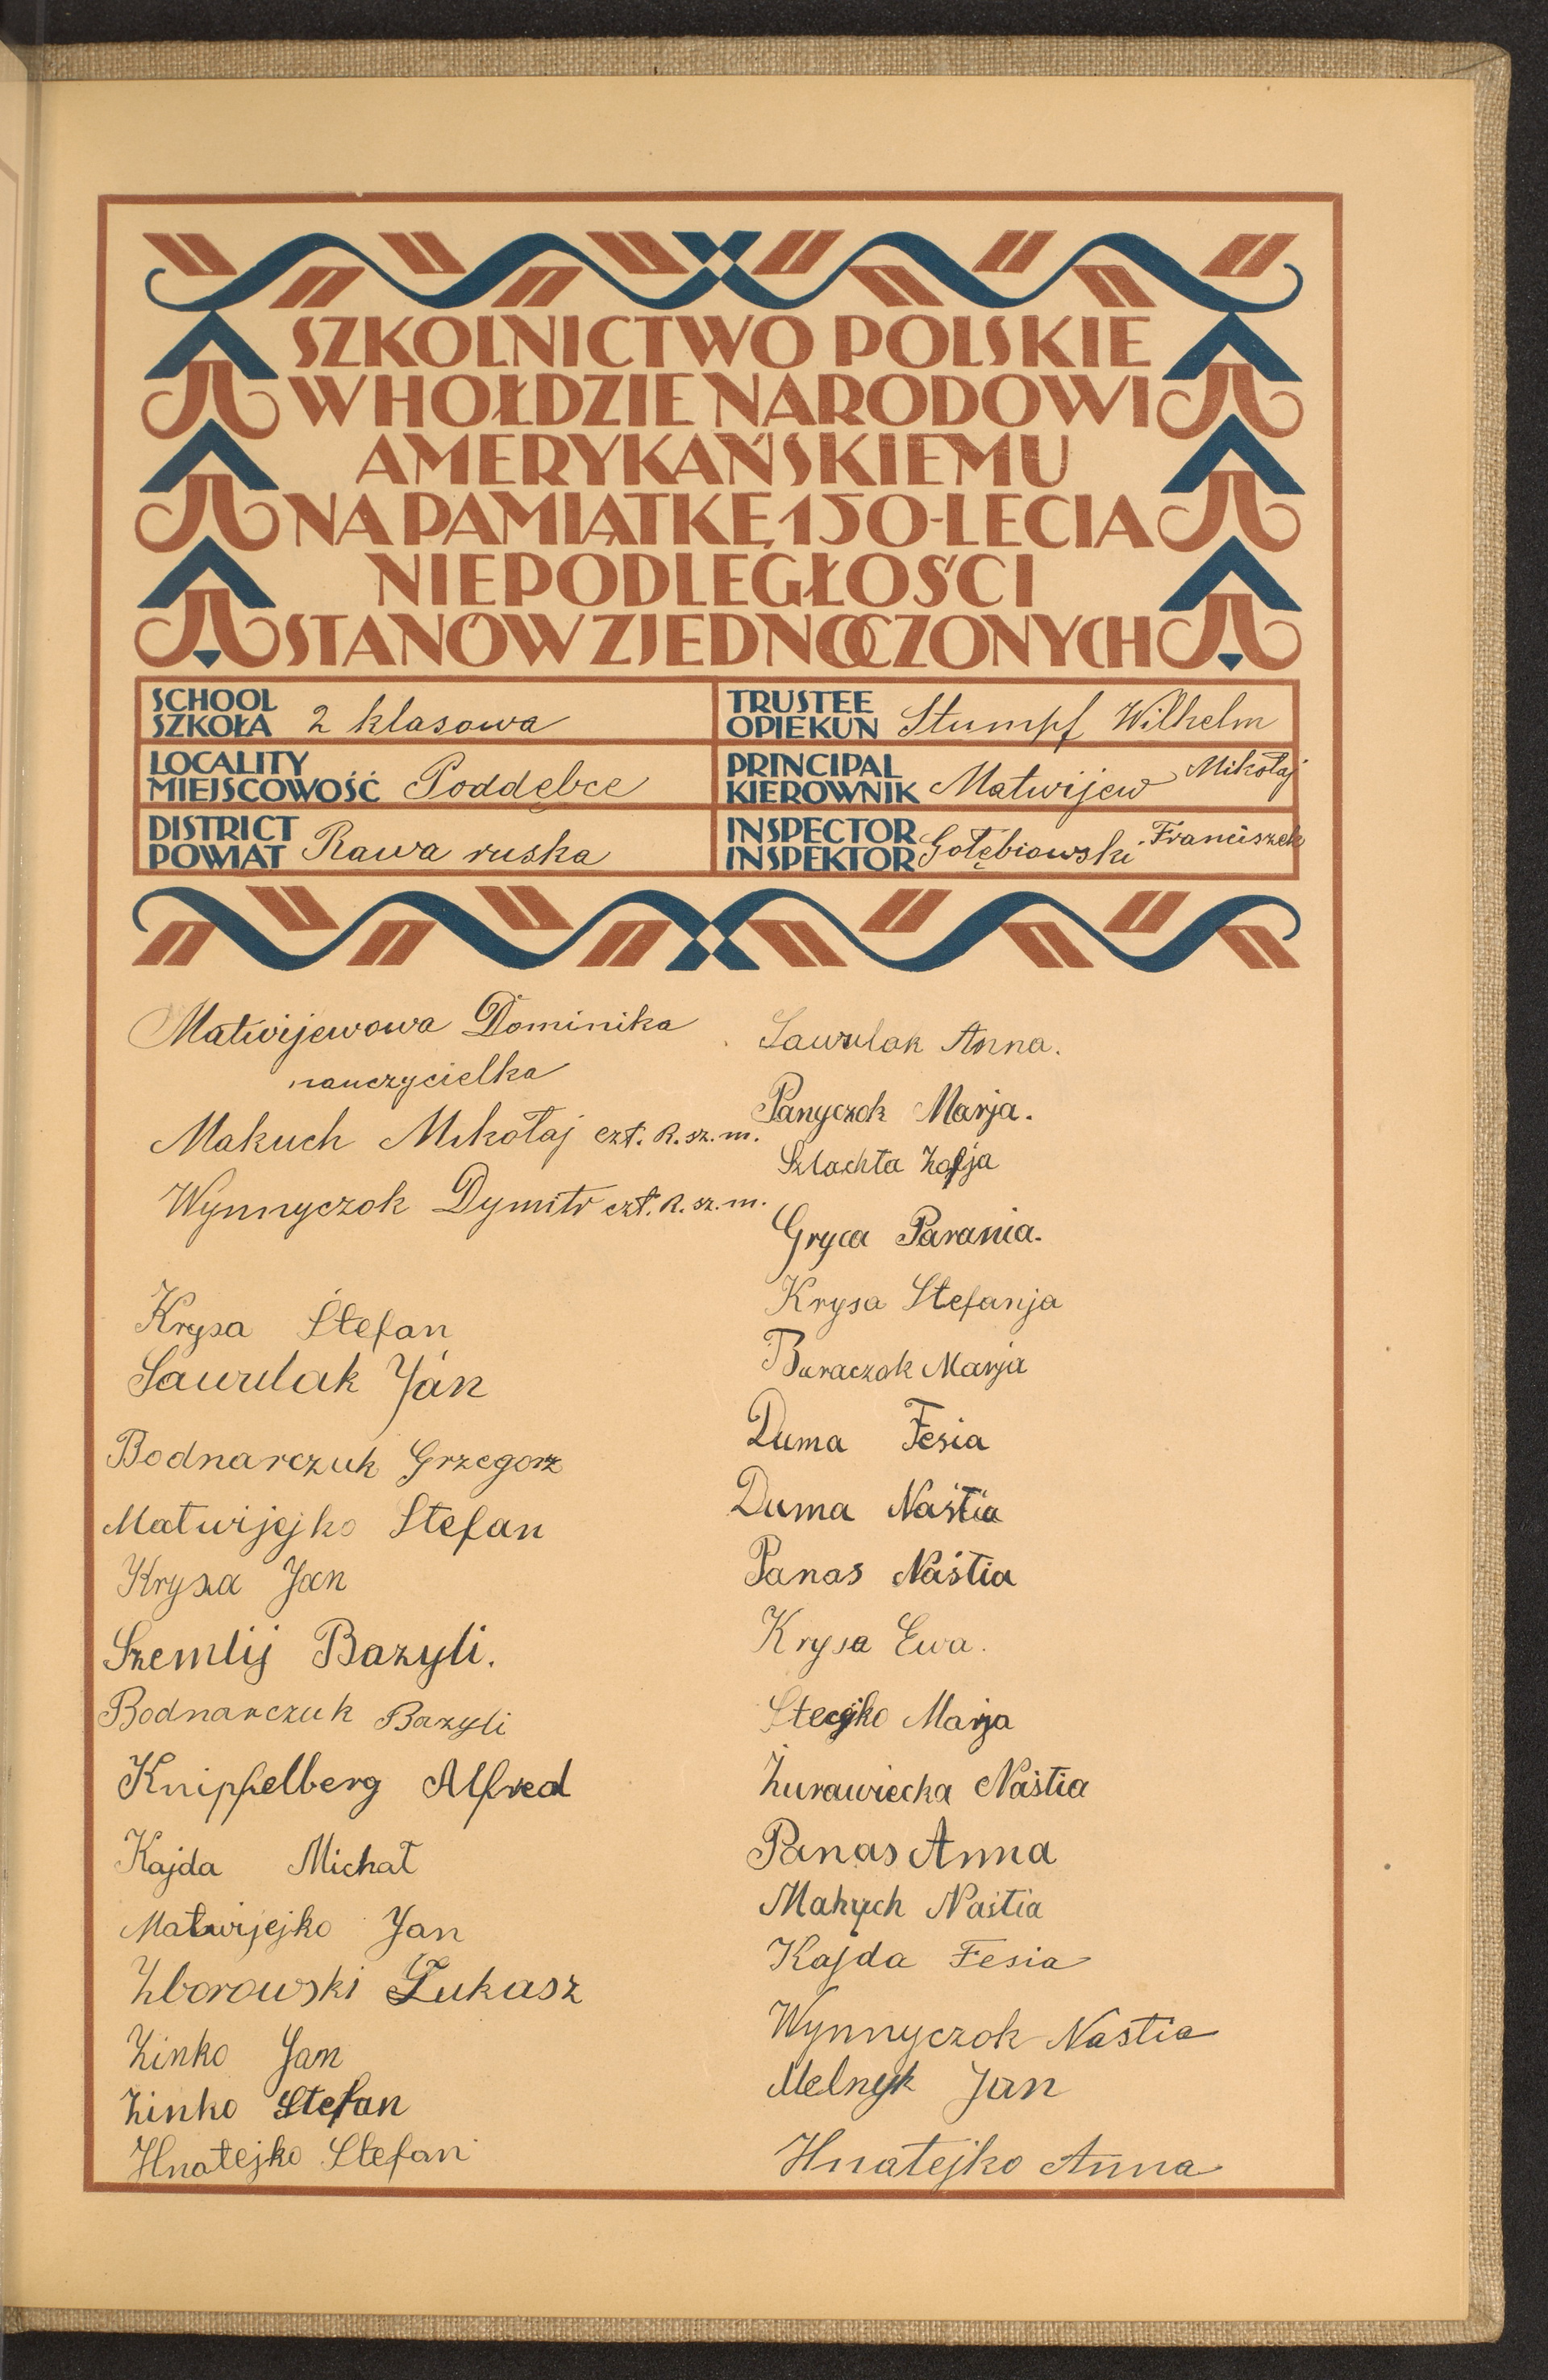 SZKOLNICTWO POLSKIE
W HOŁDZIE NARODOWI
AMERYKAŃSKIEMU
NA PAMIĄTKĘ 150-LECIA
NIEPODLEGŁOŚCI
STANÓW ZJEDNOCZONYCH
SCHOOL
SZKOŁA 2 klasowa
TRUSTEE
OPIEKUN Stumpf Wilhelm
LOCALITY
MIEJSCOWOŚĆ Poddębce
PRINCIPAL
KIEROWNIK Matwijew Mikołaj
DISTRICT
POWIAT Rawa ruska
INSPECTOR
INSPEKTOR Gołębiowski Franciszek
Matwijewowa Dominika
nauczycielka
Makuch Mikołaj czł. R. sz. m.
Wynnyczok Dymitr czł. R. sz. m.
Krysa Stefan
Sawulak Jan
Bodnarczuk Grzegorz
Matwijejko Stefan
Krysa Jan
Szemlij Bazyli.
Bodnarczuk Bazyli
Knippelberg Alfred
Kajda Michał
Matwijejko Jan
Zborowski Łukasz
Zinko Jan
Zinko Stefan
Hnatejko Stefan
Sawulak Anna.
Panyczok Marja.
Szlachta Zofja
Gryca Parania.
Krysa Stefanja
Buraczok Marja
Duma Fesia
Duma Naśtia
Panas Naśtia
Krysa Ewa.
Stecjko Marja
Żurawiecka Naśtia
Panas Anna
Makuch Naśtia
Kajda Fesia
Wynnyczok Nastia
Melnyk Jan
Hnatejko Anna